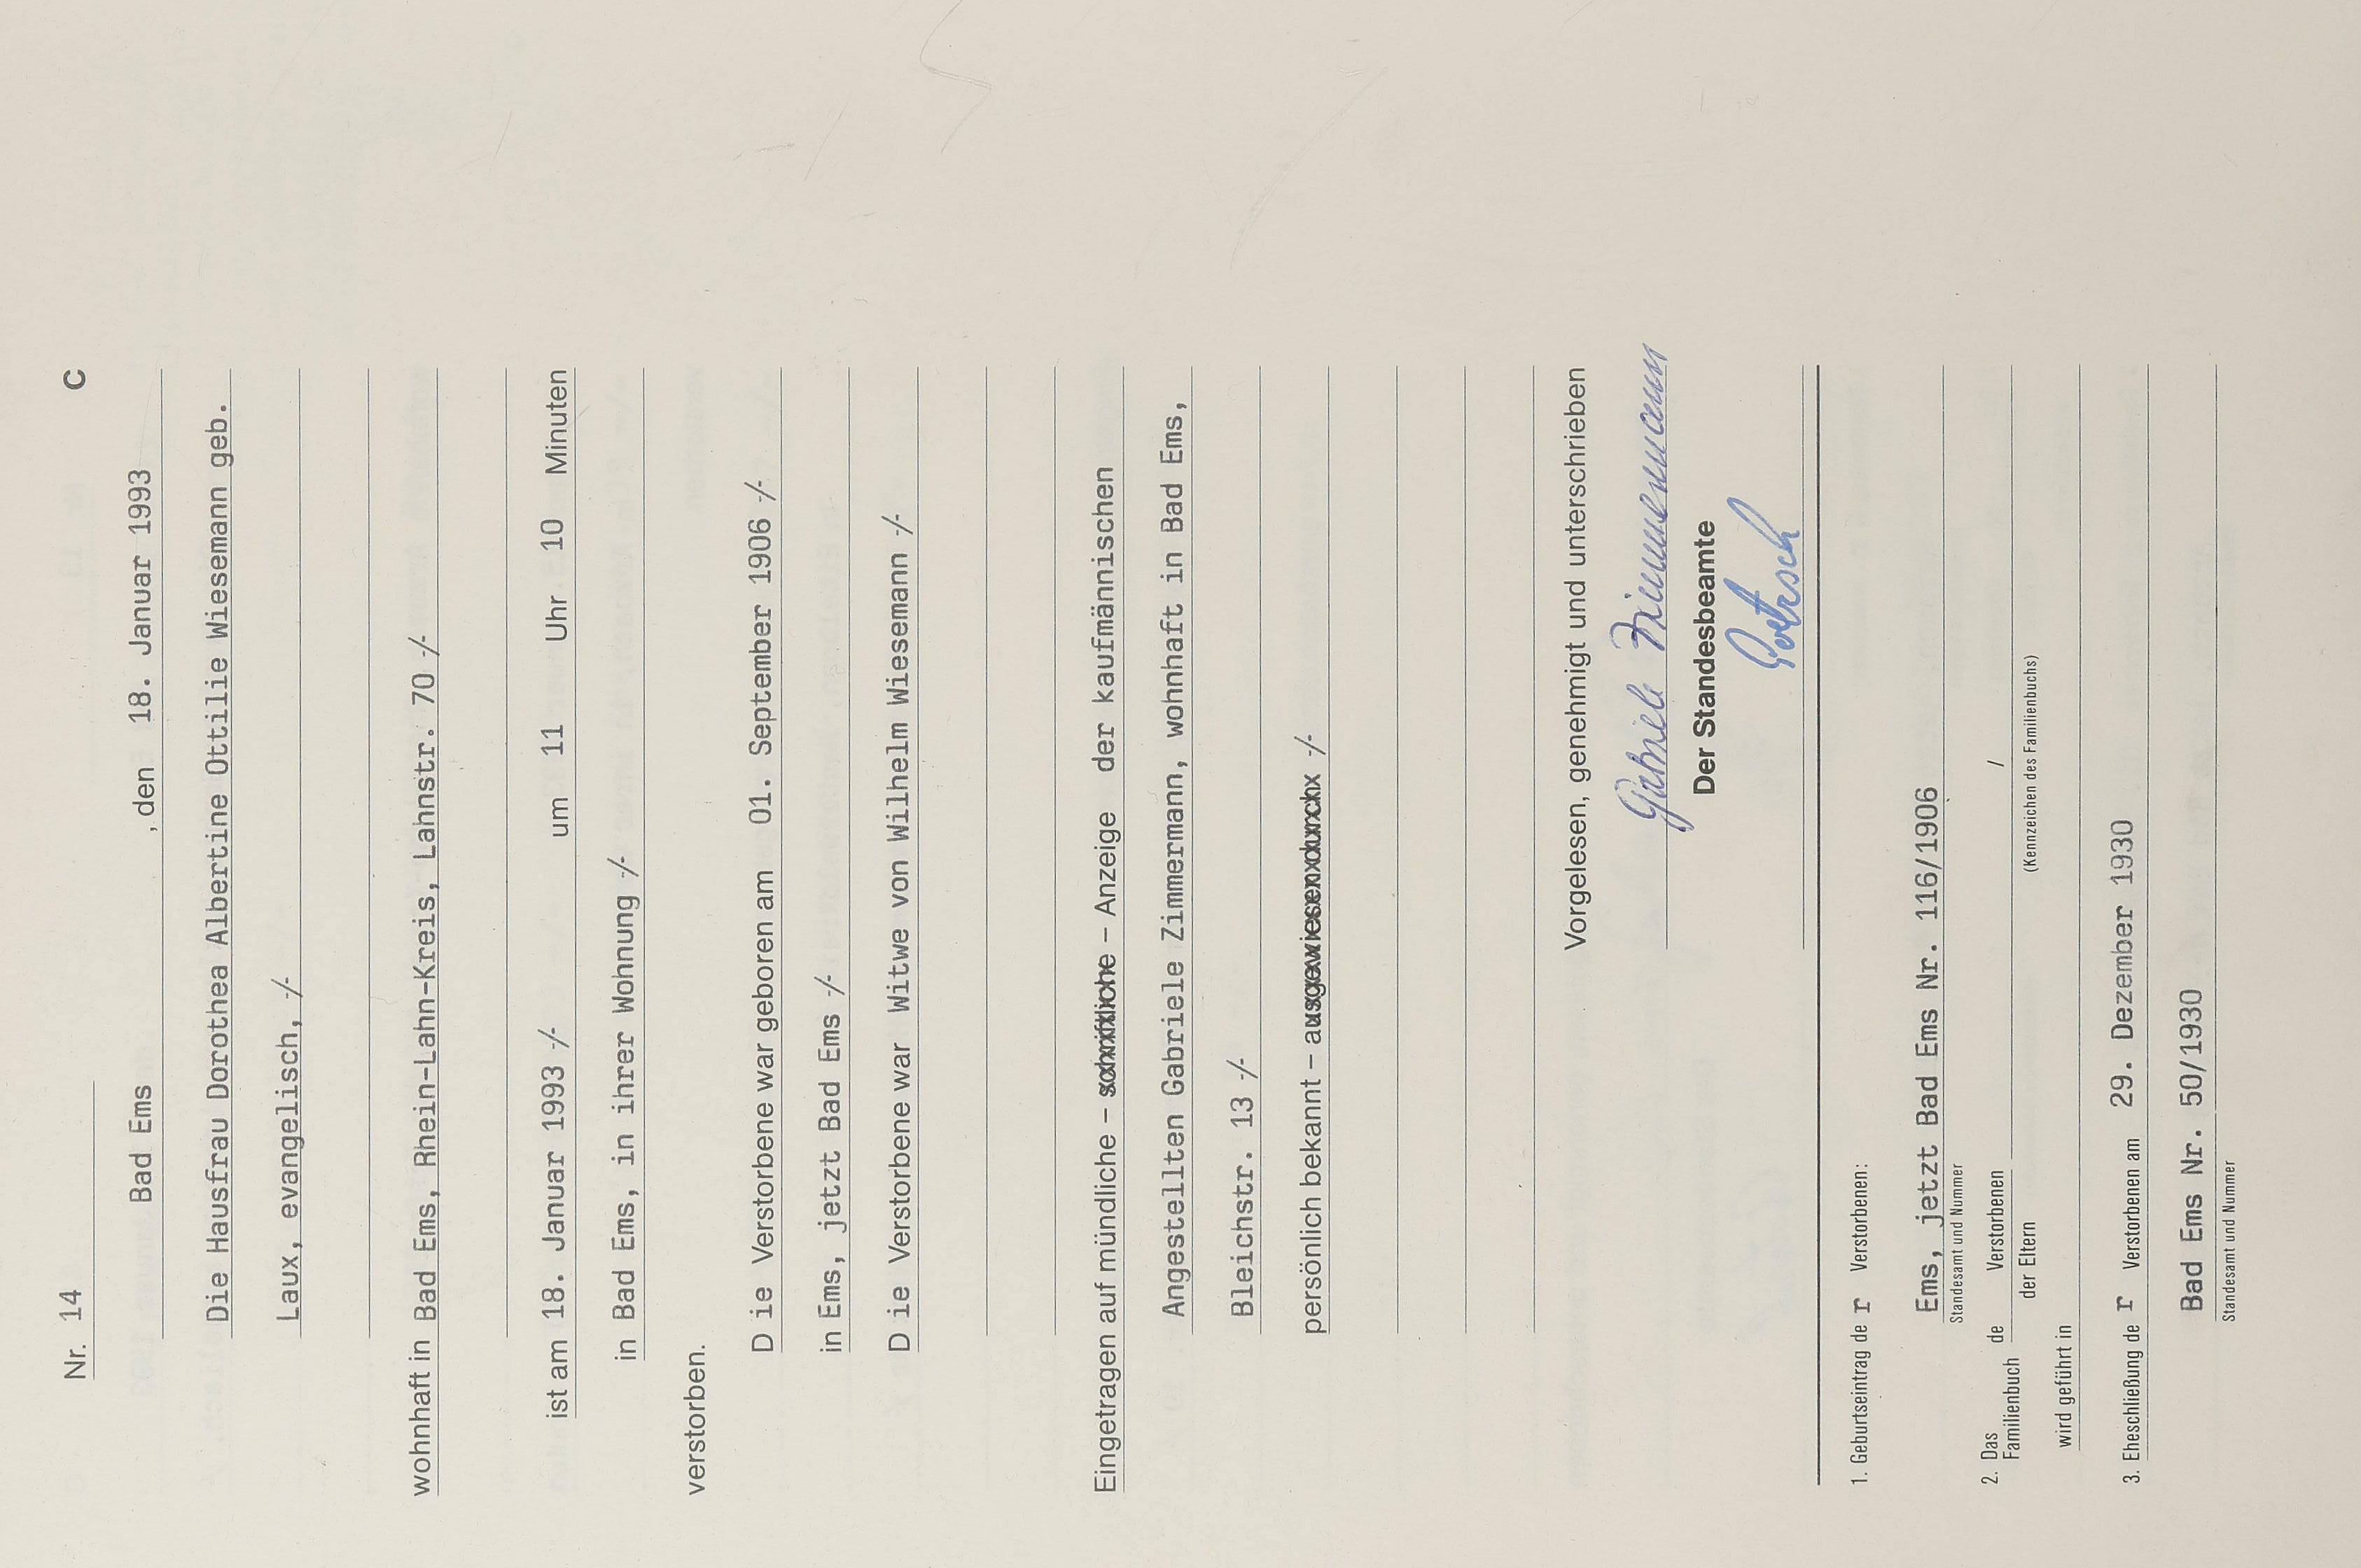 Nr. 14 C
Bad Ems , den 18. Januar 1993
Die Hausfrau Dorothea Albertine Ottilie Wiesemann geb.
Laux, evangelisch, -/-
wohnhaft in Bad Ems, Rhein-Lahn-Kreis, Lahnstr. 70 -/-
ist am 18. Januar 1993 -/- um 11 Uhr 10 Minuten
in Bad Ems, in ihrer Wohnung -/-
verstorben.
D ie Verstorbene war geboren am 01. September 1906 -/-
in Ems, jetzt Bad Ems -/-
D ie Verstorbene war Witwe von Wilhelm Wiesemann -/-
Eingetragen auf mündliche – schriftliche – Anzeige der kaufmännischen
Angestellten Gabriele Zimmermann, wohnhaft in Bad Ems,
Bleichstr. 13 -/-
persönlich bekannt – ausgewiesen durch -/-
Vorgelesen, genehmigt und unterschrieben
Gabriele Zimmermann
Der Standesbeamte
1. Geburtseintrag de r Verstorbenen:
Ems, jetzt Bad Ems Nr. 116/1906
Standesamt und Nummer
2. Das Familienbuch de Verstorbenen /
der Eltern (Kennzeichen des Familienbuchs)
wird geführt in
3. Eheschließung de r Verstorbenen am 29. Dezember 1930
Bad Ems Nr. 50/1930
Standesamt und Nummer